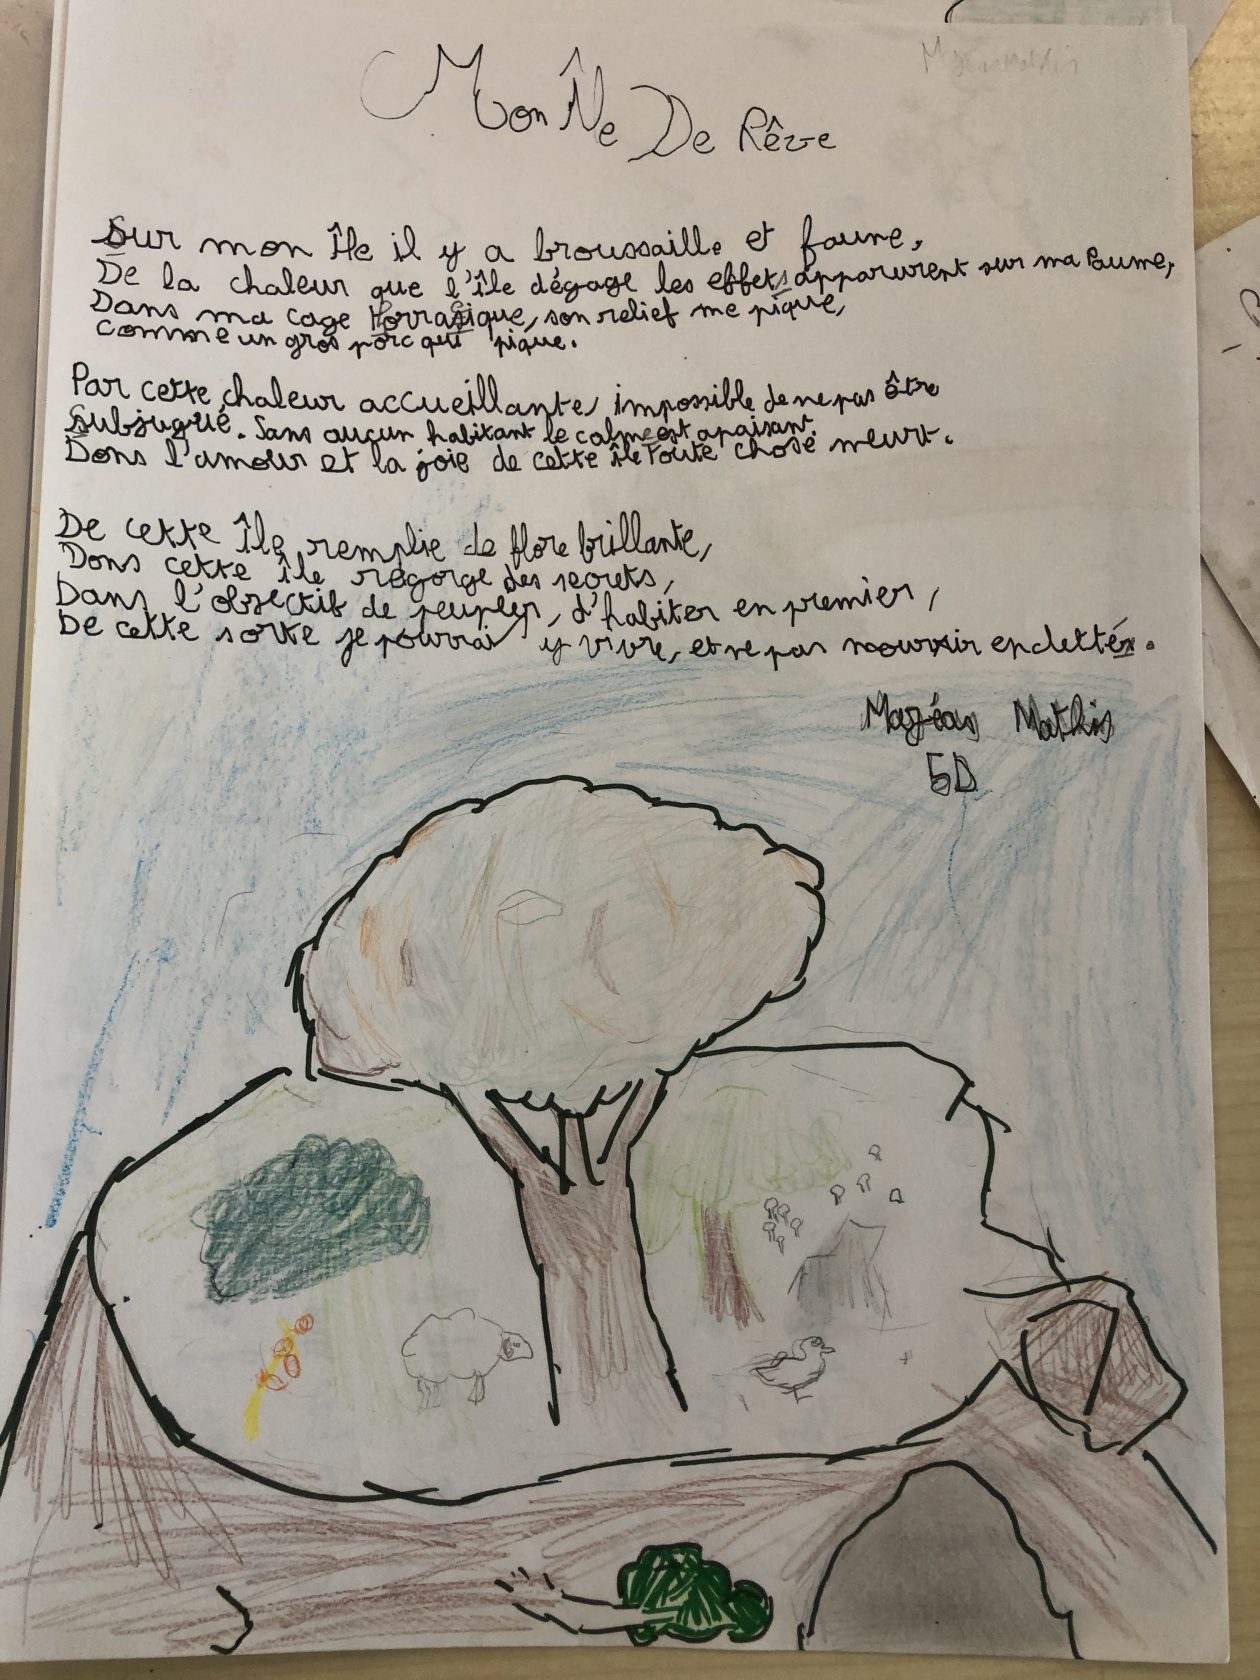 Mon Île De Rêve
Sur mon Île il y a broussaille et faune,
De la chaleur que l'île dégage les effets apparurent sur ma Paume,
Dans ma cage Torrasique, son relief me pique,
Comme un gros porc qui pique.
Par cette chaleur accueillante, impossible de ne pas être
Subjugué. Sans aucun habitant le calme est apaisant.
Dans l'amour et la joie de cette île toute chose meurt.
De cette Île remplie de flore brillante,
Dans cette île regorge des secrets,
Dans l'objectif de peupler, d'habiter en premier,
De cette sorte je pourrai y vivre, et ne pas mourrir endetter.
Mazéas Mathis
5D